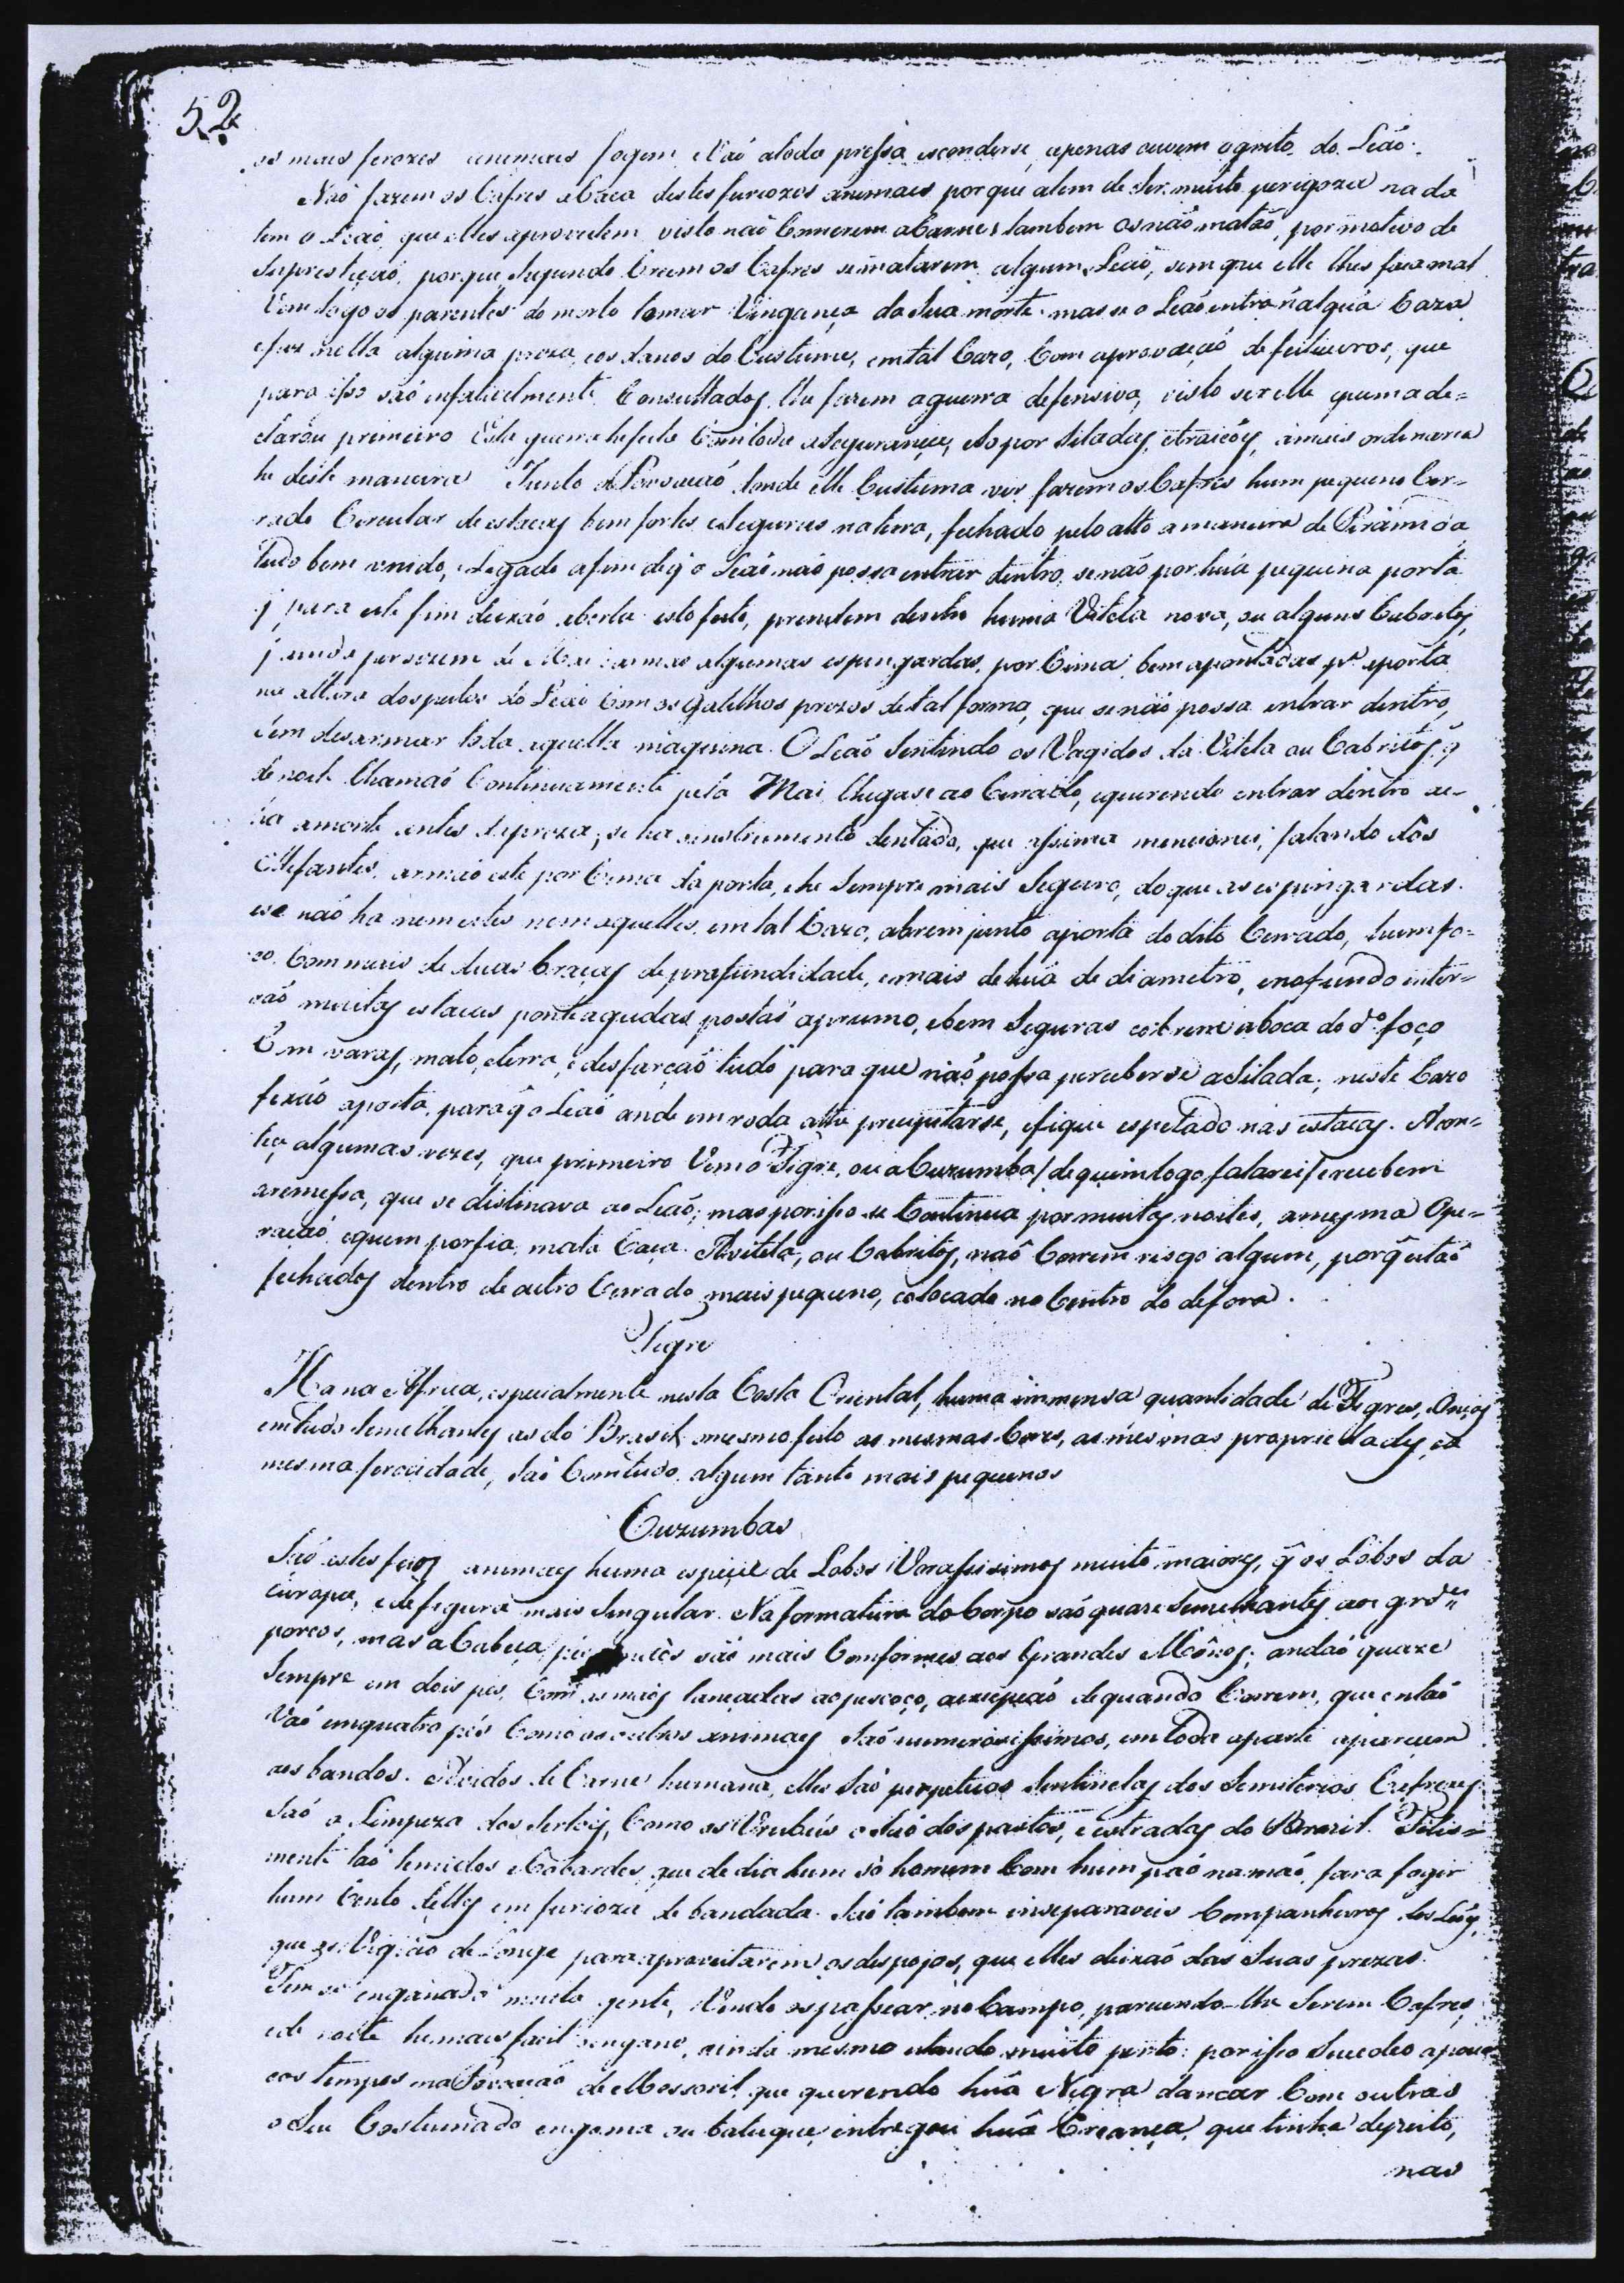 52
os mais ferozes animais fogem e vaõ a toda pressa esconderse, apenas ouvem o grito do Leaõ.
Naõ fazem os Cafres a Caça destes furiozos animais porque alem de Ser muito perigoza nada
tem o Leaõ que elles aproveitem visto naõ Comerem a Carne; tambem os naõ mataõ, por motivo de
Suprestiçaõ, porque Segundo Crem os Cafres se matarem algum Leaõ, sem que elle lhes faça mal
Vem logo os parentes do morto tomar Vingança da Sua morte. mas se o Leaõ entra n'alguã Caza
e faz nella alguma preza, e os danos do Custume, em tal Cazo, Com aprovaçaõ de feiticeiros, que
para isso saõ infalivelmente Consultados, lhe fazem a guerra defensiva, visto ser elle quem a de=
clarou primeiro Esta guerra he feita Com toda a Segurança, e so por Siladas, e traicoẽs, a mais ordinaria
he deste maneira Junto a Povoaçaõ donde elle Custuma vir fazem os Cafres hum pequeno Cer=
rado Circular de estacas bem fortes, e Seguras na terra, fechado pelo alto a maneira de Piramida
tudo bem unido, e Legado afim de q̃ o Leaõ naõ possa entrar dentro, se naõ por huã pequena porta
q̃ para este fim deixaõ aberta isto feito, prendem dentro huma Vitela nova, ou alguns Cabritos,
algumas espingardas, por Cima bem apontadas pª a porta
na altura dos peitos do Leaõ Com os gatilhos prezos de tal forma, que se naõ possa entrar dentro,
cem desarmar toda aquella maquina. O Leaõ Sentindo os Vagidos da Vitela ou Cabritos, q̃
de noite Chamaõ Continuamente pela Mai Chegase ao Cerrado, e querendo entrar dentro ae=
ha a morte antes da preza; se ha instrumento dentado, que assima mencionei, falando dos
Elefantes, armaõ este por Cima da porta, e he Sempre mais Seguro, do que as espingardas.
e se naõ ha nem estes nem aquelles, em tal Cazo, abrem junto a porta do dito Cerrado, hum fo=
ço Com mais de duas braças de profundidade, e mais de huã de diametro, e no fundo inter=
raõ muitas estacas ponteagudas postas a prumo, e bem Seguras cobrem a boca do dº foço
Com varas, mato, e terra, e desfarçaõ tudo para que naõ possa perceberse a Silada; neste Cazo
fexaõ a porta, para q̃ o Leaõ ande em roda athe precipitarse, e fique espetado nas estacas. Acon=
teçe algumas vezes, que primeiro Vem o Tigre, ou a Cuzumba / de quem logo falarei / e recebem
a remessa, que se distinava ao Leaõ; mas por isso se Continua por muitas noites, a mesma Ope=
raçaõ, e quem porfia mata Caça. A vitela, ou Cabritos, naõ Correm risgo algum, porq̃ estaõ
fechados dentro de outro Cerrado mais pequeno, colocado no Centro do de fora.
Tigre
Ha na Africa, especialmente nesta Costa Oriental, huma immensa quantidade de Tigres, e Onças
em tudo Semelhantes as do Brasil, mesmo feito as mesmas Cores, as mesmas propriedades, e a
mesma ferocidade, Saõ Comtudo algum tanto mais pequenos
Cuzumbas
Saõ estes feios animaes huma espeçie de Lobos Vorassissimos muito maiores, q̃ os Lobos da
Europa, e de figura mais Singular. Na formatura do Corpo saõ quaze Semelhantes aos grdes
porcos, mas a Cabeça, pés saõ mais Conformes aos Grandes Mônos; andaõ quaze
Sempre em dois pés, Com as maõs lançadas ao pescoço, a excepçaõ de quando Correm, que entaõ
Vaõ em quatro pés Como os outros animaes Saõ numerosissimos, em toda a parte aparecem
aos bandos. Avidos de Carne humana, elles Saõ perpetuos Sentinelas dos Semiterios Cafreaes
Saõ a Limpeza dos Sertoẽs, Como os Urubús o Saõ dos pastos, e estradas do Brazil. Feliz=
mente taõ temidos e Cobardes, que de dia hum só homem Com hum páo na maõ, fara fogir
hum Cento delles em furioza debandada. Saõ tambem inseparaveis Companheiros dos Leoẽs,
que os Vigiaõ de Longe para aproveitarem os despojos, que elles deixaõ das Suas prezas.
Temse enganado muita gente, Vendo os passear no Campo, parecendo-lhe Serem Cafres,
e de noite he mais facil o engano, ainda mesmo estando muito perto: por isso Sucedeo a pou=
cos tempos na Povoaçaõ de Mossoril, que querendo huã Negra dancar Com outras
o Seu Costumado engoma ou batuque, entregou huã Creança, que tinha de peito,
nas